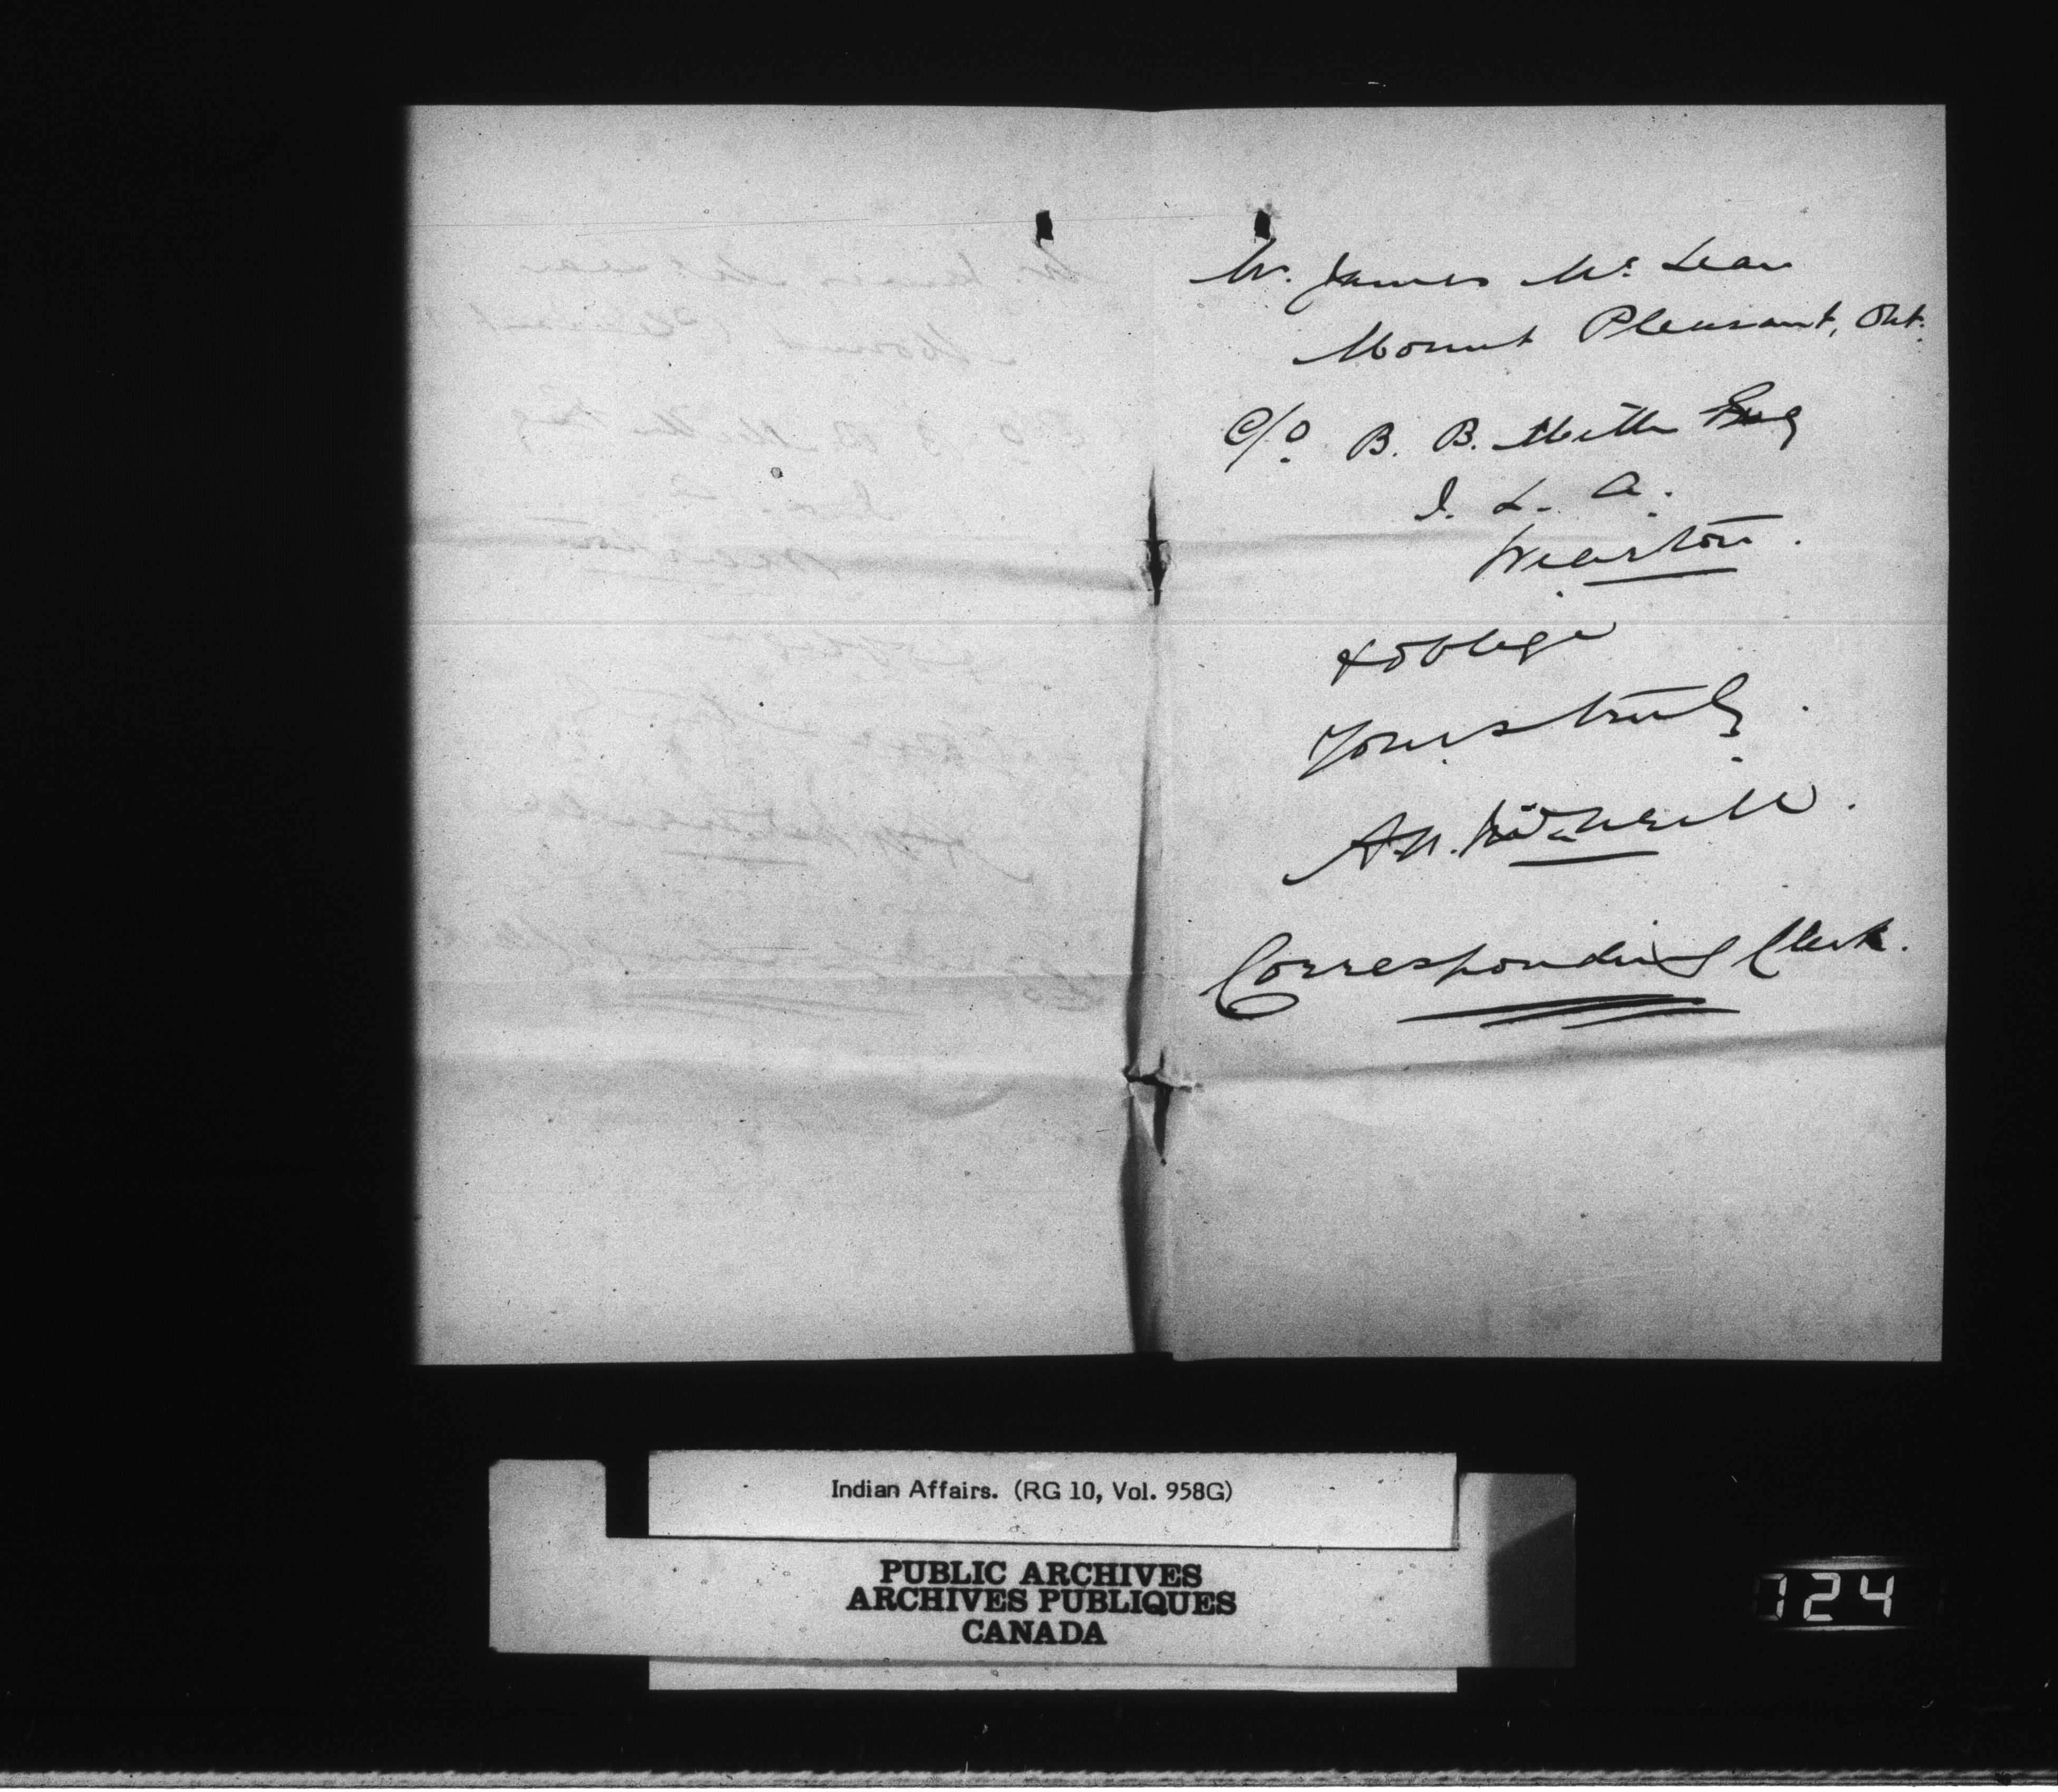 Mr. James Mc Lean
Mount Pleasant, Ont.
C/o B. B. Miller Esq
I. L. A.
Wiarton.
& oblige
Yours truly.
A.N.
Corresponding Clerk.
Indian Affairs. (RG 10, Vol. 958G)
PUBLIC ARCHIVES
ARCHIVES PUBLIQUES
CANADA
724